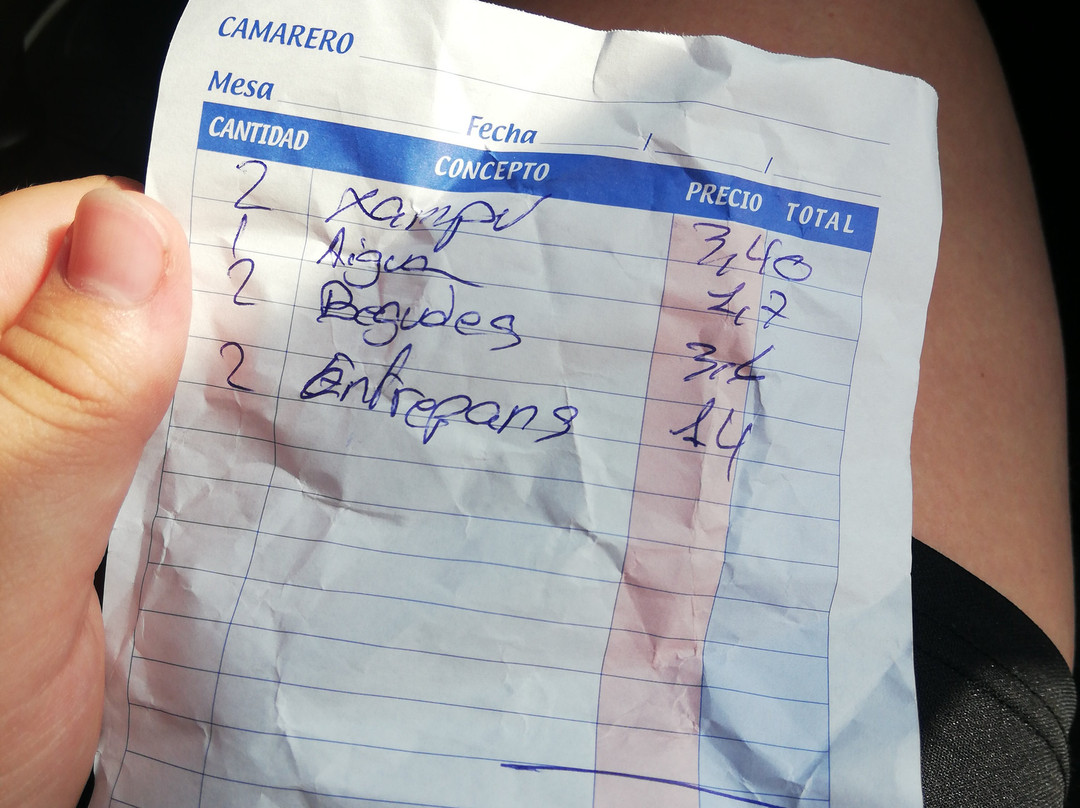 CAMARERO
Mesa
Fecha / /
CANTIDAD CONCEPTO PRECIO TOTAL
2 Xampú 3,40
1 Aigua 1,7
2 Begudes
2 Entrepans 14